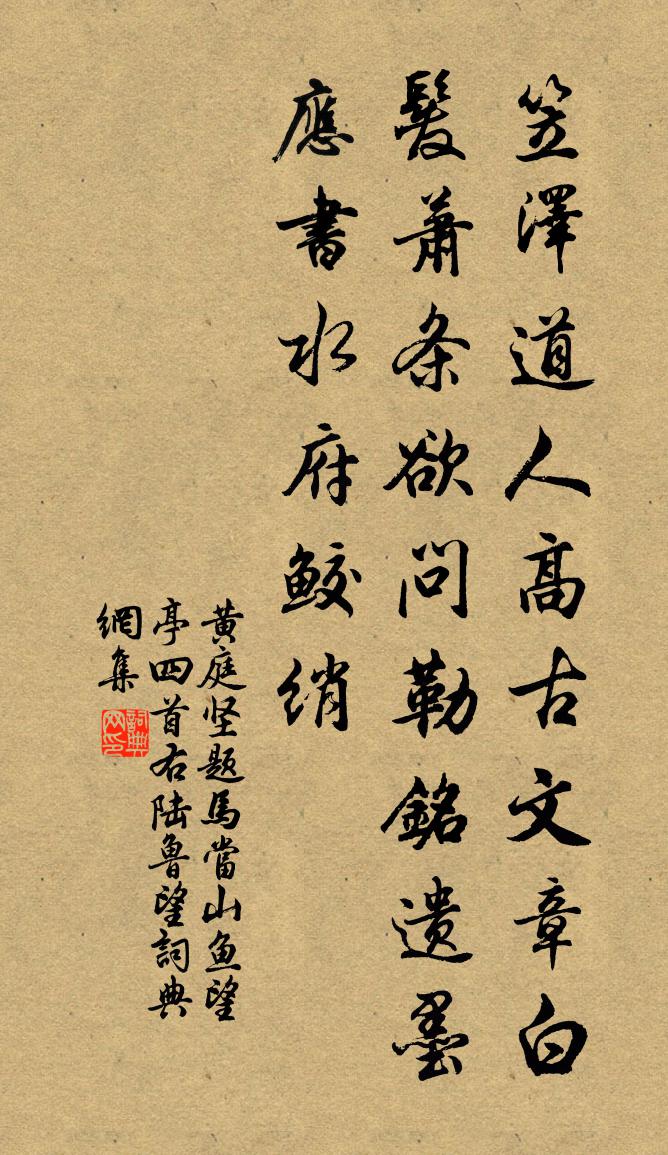 笠澤道人高古文章白
髮蕭条欲問勒銘遺墨
應書水府鮫綃
黄庭坚題馬當山魚望
亭四首右陆魯望詞典
網集
詞典网印